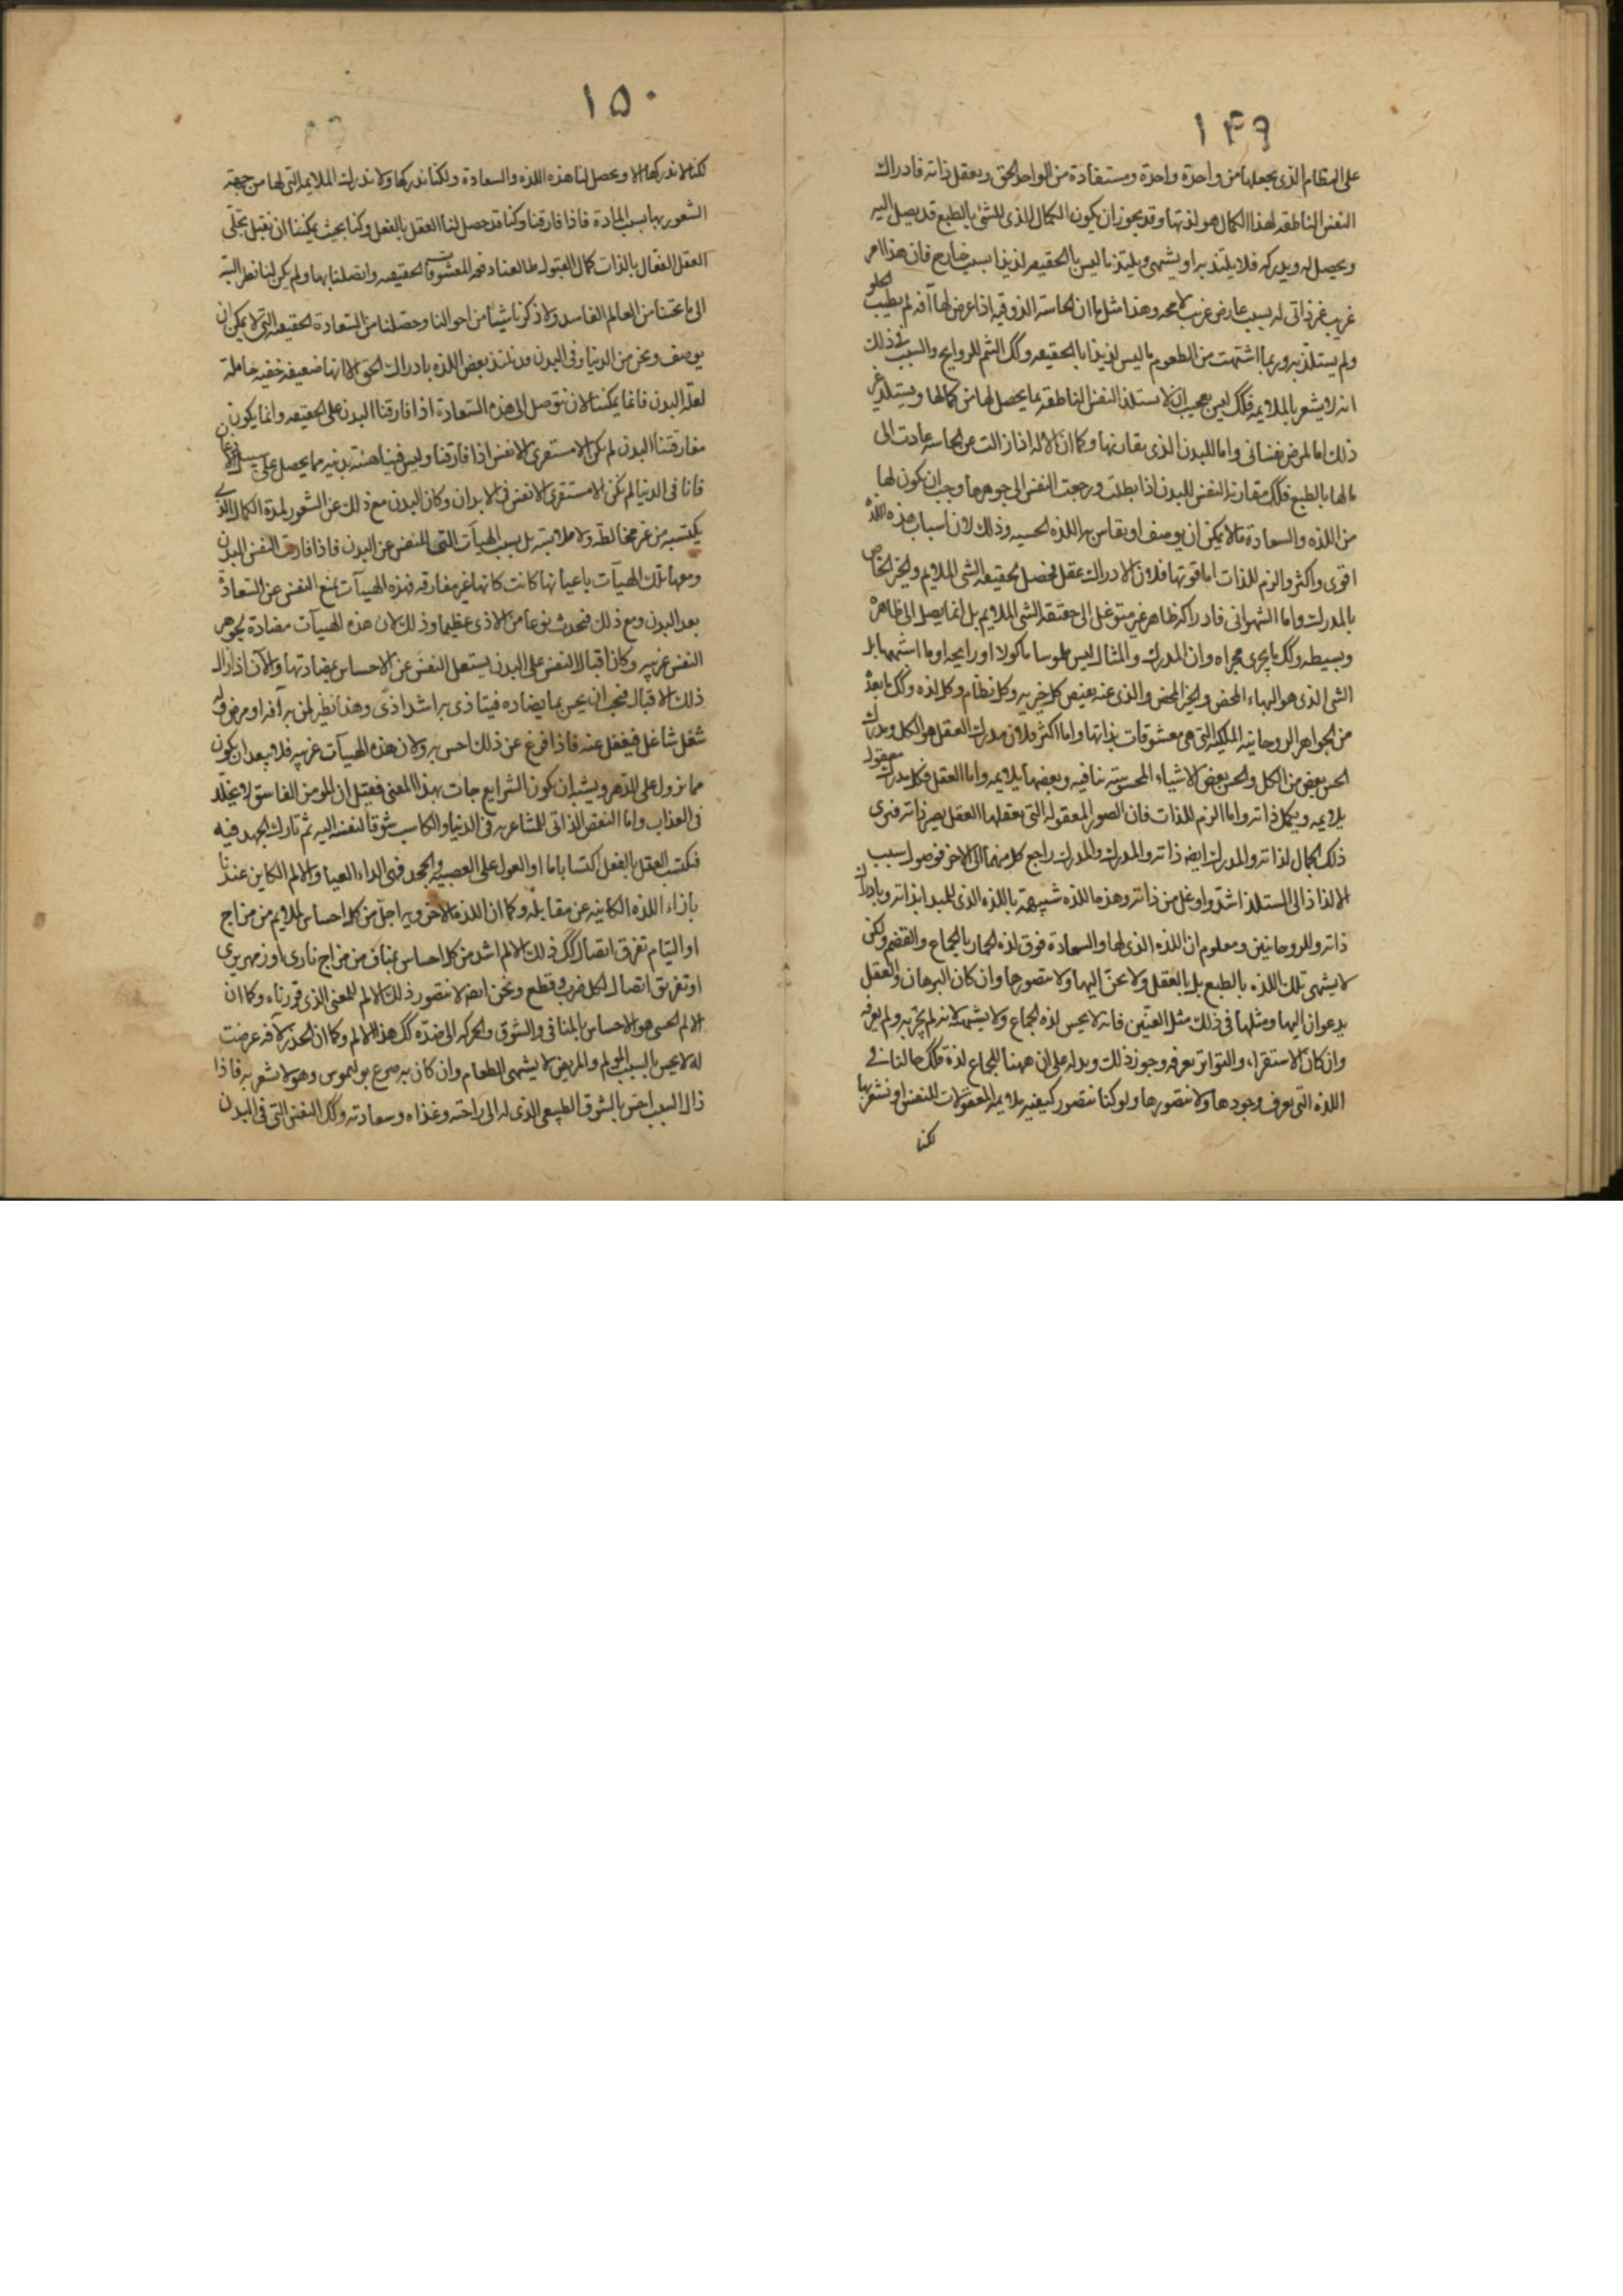 ١٤٩
على النظام الذى يجعلها من واحدة واحدة ومستفادة من الواحد الحق ويعقل ذاته فادراك
النفس الناطقه لهذا الكمال هو لذتها وقد يجوز ان يكون الكمال الذى للشئ بالطبع قد يصل اليه
ويحصل له ويدركه فلا يلتذ به او يشتهى ويلتذ ما ليس بالحقيقه لذيذا بسبب خارج فان هذا امر
غريب غير ذاتى له بسبب عارض غريب لا محه وهذا مثل ما ان الحاسه الذوقيه اذا عرض لها آفه لم يطيب الحلو
ولم يستلذ به وربما اشتهت من الطعوم ما ليس لذيذا بالحقيقه وكك الشم للروايح والسبب فى ذلك
انه لا يشعر بالملايمه فكك ليس بعجيب ان لا يستلذ النفس الناطقه بما يحصل لها من كمالها ويستلذ غير
ذلك اما لمرض نفسانى واما للبدن الذى يقارنها وكما ان الآفه اذا زالت عن الحاسه عادت الى
ما لها بالطبع فكك مقارنة النفس للبدن اذا بطلت ورجعت النفس الى جوهرها وجب ان يكون لها
من اللذه والسعادة ما لا يمكن ان يوصف او يقاس به اللذه الحسيه وذلك لان اسباب هذه اللذه
اقوى واكثر والزم للذات اما قوتها فلان الادراك عقلى محصل لحقيقه الشى الملايم والخير الخاص
بالمدرك واما الشهوانى فادراكه ظاهر غير متوغل الى حقيقه الشى الملايم بل انما يصل الى ظاهره
وبسيطه وكك ما يجرى مجراه وان المدرك والمثال ليس ملموسا ماكولا او رايحه او ما اشبهها بل
الشى الذى هو البهاء المحض والخير المحض والذى عنه يفيض كل خيريه وكل نظام وكل لذه وكك ما بعده
من الجواهر الروحانيه الملكيه التى هى معشوقات بذاتها واما اكثر فلان مدرك العقل هو الكل ومدرك
الحس بعض من الكل والحس بعض الاشياء المحسوسه تنافيه وبعضها يلايمه واما العقل فكل مدرك معقول
يلايمه ويكمل ذاته واما الزم للذات فان الصور المعقوله التى يعقلها العقل يصير ذاته فيرى
ذلك الجمال لذاته والمدرك ايضه ذاته والمدرك والمدرك راجع كل منهما الى الاخر فوصول سبب
الالذاذ الى المستلذ اشد واوغل من ذاته وهذه اللذه شبيهه باللذه الذى للمبدا بذاته وبادراك
ذاته وللروحانيين ومعلوم ان اللذه الذى لها والسعادة فوق لذه الحمار بالجماع والقضم ولكن
لا يشتهى تلك اللذه بالطبع بل بالعقل ولا نحن اليها ولا نتصورها وان كان البرهان والعقل
يدعوان اليها ومثلها فى ذلك مثل العنين فانه لا يحس لذه الجماع ولا يشتهيه لانه لم يجربه ولم يعرفه
وان كان الاستقراء والتواتر يعرفه وجود ذلك ويدله على ان ههنا للجماع لذة فكك حالنا فى
اللذه التى نعرف وجودها ولا نتصورها ولو كنا نتصور كيفيه ملايمه المعقولات للنفس او نشعر بها
لكنا
١٥٠
لكنا لا ندركها الا ويحصل لنا هذه اللذه والسعادة ولكنا ندركها ولا ندرك الملايمه التى لها من جهة
الشعور بها بسبب المادة فاذا فارقنا وكنا قد حصل لنا العقل بالفعل وكنا بحيث يمكننا ان نقبل تجلى
العقل الفعال بالذات كمال القبول طالعنا دفعه المعشوقات الحقيقيه واتصلنا بها ولم يكن لنا نظر البته
الى ما تحتنا من العالم الفاسد ولا ذكرنا شيئا من احوالنا وحصلنا من السعادة الحقيقيه التى لا يمكن ان
يوصف ونحن من الدنيا وفى البدن قد نلتذ بعض اللذه بادراك الحق الا انها ضعيفه خفيه خاملة
لعله البدن فانما يمكننا الان نتوصل الى هذه السعادة اذا فارقنا البدن على الحقيقه وانما يكون
مفارقتنا البدن لم يكن الا مستقرى الانفس اذا فارقنا وليس فينا هيئة بدنيه مما يحصل على سبيل الاذعان
فانا فى الدنيا لم نكن الا مستقرى الانفس فى الابدان وكان البدن مع ذلك عن الشعور لمدة الكمال الذى
يكتسبه من غير مخالطه ولا ملابسته بل بسبب الهيآت التى للنفس عن البدن فاذا فارقت النفس البدن
ومعها تلك الهيآت باعيانها كانت كانها غير مفارقه فهذه الهيآت تمنع النفس عن السعادة
بعد البدن ومع ذلك فيحدث نوعا من الاذى عظيما وذلك لان هذه الهيآت مضادة لجوهر
النفس غريبه وكان اقبال النفس على البدن يشغل النفس عن الاحساس بمضادتها والآن اذ زال
ذلك الاقبال فيجب ان يحس بما يضاده فيتاذى به اشد اذى وهذا نظير لمن به آفه او مرض وله
شغل شاغل فيغفل عنه فاذا فرغ عن ذلك احس به ولان هذه الهيآت غريبه فلا يبعد ان يكون
مما يزول على الدهر ويشبه ان يكون الشرايع جات بهذا المعنى فقيل ان المومن الفاسق لا يخلد
فى العذاب واما النقص الذاتى للشاعر به فى الدنيا والكاسب شوقا لنفسه اليه ثم تارك الجهد فيه
فيكتسب العقل بالفعل اكتسابا ما او العول على العصبيه والجحد فهى الداء العيا والالم الكاين عنه
بازاء اللذه الكاينه عن مقابله وكما ان اللذه الاخرويه اجل من كل احساس بملايم من مزاج
او التيام تفرق اتصال كك ذلك الالم اشد من كل احساس بمناف من مزاج نارى او زمهريرى
او تفريق اتصال لكل ضرب وقطع ونحن ايضه لا نتصور ذلك الالم للمعنى الذى قررناه وكما ان
الالم الحسى هو الاحساس بالمنافى والشوق والحركه الى ضده كك هذا الالم وكما ان الخدر لآفه عرضت
له لا يحس بالسبب المولم والمريض لا يشتهى الطعام وان كان به جوع بوليموس وهو لا يشعر به فاذا
زال السبب احس بالشوق الطبيعى الذى له الى راحته وغذاه وسعادته وكك النفس التى فى البدن